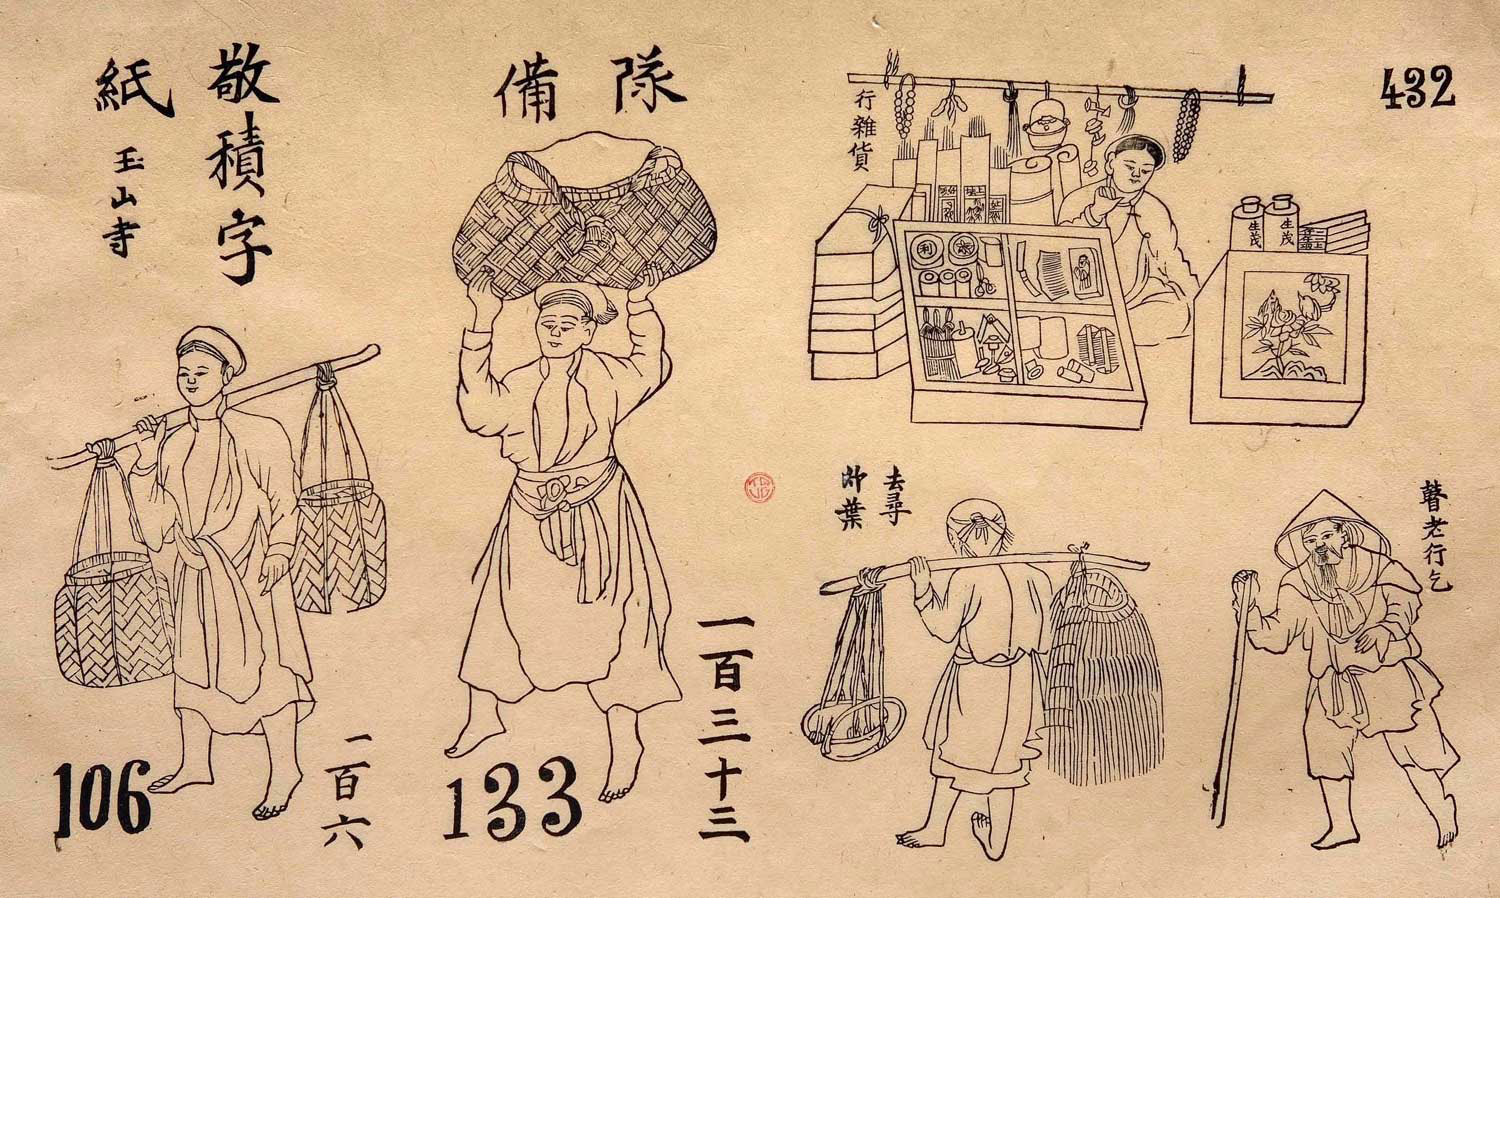 敬積字
紙
玉山寺
106
一百六
隊備
133
一百三十三
432
行雜貨
生茂
生茂
利
去尋
葉
瞽老行乞